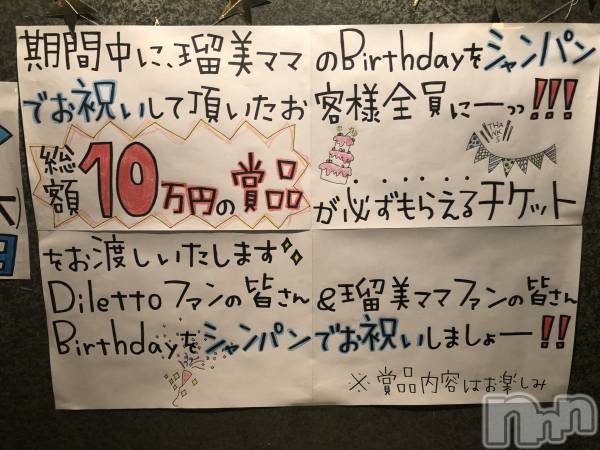 期間中に、瑠美ママのBirthdayをシャンパン
でお祝いして頂いたお客様全員にーっっ!!!
総額10万円の賞品 THANKS
が必ずもらえるチケット
をお渡しいたします
Dilettoファンの皆さん&瑠美ママファンの皆さん
Birthdayをシャンパンでお祝いしましょー!!
※賞品内容はお楽しみ